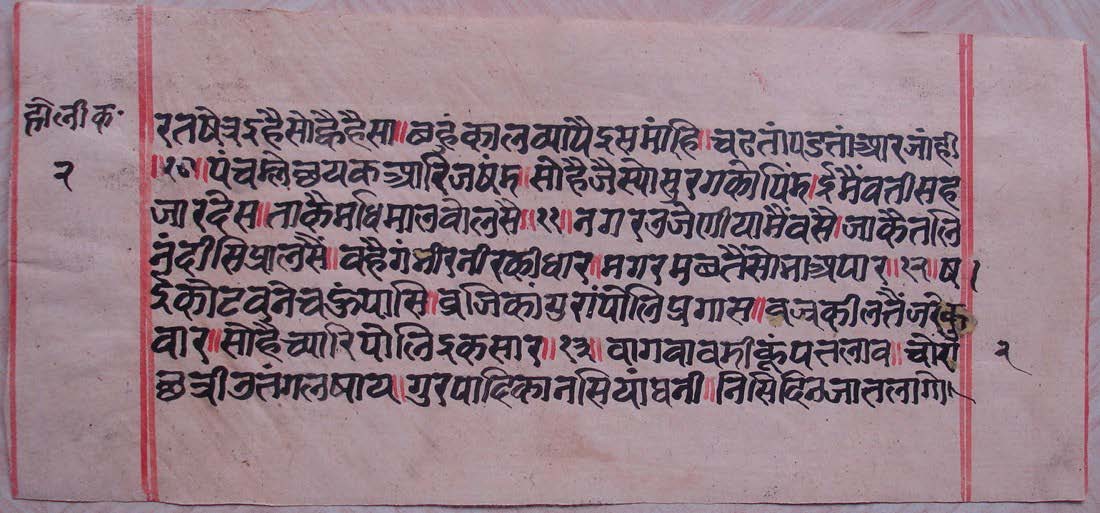 होलीक॰
२
रतषेत्रइहैसोह्वैहैसा॥ छहुंकालव्यापैइसमांहि॥ चढतांपडतांआरजांही
॥१०॥ पंचम्लेछयकआरिजषंम॥ सोहैजैस्योसुरगकोपिंम॥ ईमैंवतीसह
जारदेस॥ ताकैमधिमालवौलसै॥११॥ नगरउजेणीयामैंवसै॥ जाकैतलि
नंदीसिप्रालसैं॥ वहैगंभीरनीरकीधार॥ मगरमछतैंसोभाअपार॥१२॥ ष
ईकोटवुतेचऊंपासि॥ व्रजिकांयुरांपोलिप्रगास॥ वज्रकीलतैंजरेकु
वार॥ सोहैच्यारिपोलिइकसार॥१३॥ वागवावमीकूंपतलाव॥ चोरां
छत्रीउतंगलषाय॥ गुरपादिकानसियांघनी॥ निसिदिनजातलागी
२